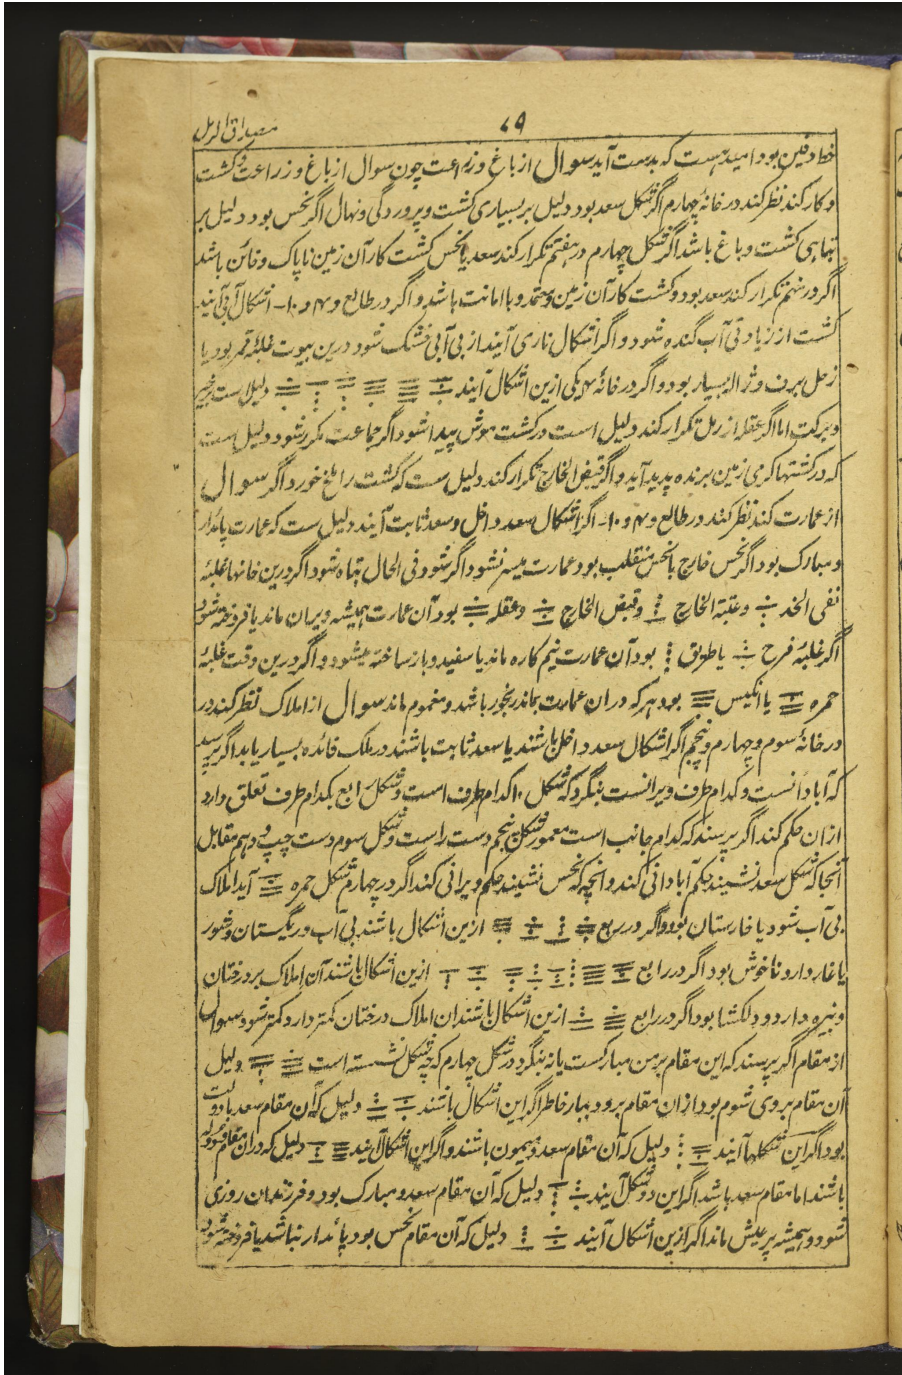 ۷۹
مصداق الرمل
خط دفین بود امید هست که بدست آید سوال از باغ و زراعت چون سوال از باغ و زراعت و کشت
و کار کند نظر کند در خانهٔ چهارم اگر شکل سعد بود دلیل بر بسیاری کشت و پروردگی و نهال اگر نحس بود دلیل بر
تباهی کشت و باغ باشد اگر شکل چهارم در هفتم تکرار کند سعد یا نحس کشت کار آن زمین ناپاک و خائن باشد
اگر در نهم تکرار کند سعد بود و کشت کار آن زمین معتمد و با امانت باشد و اگر در طالع و ۴ و ۱۰ اشکال آبی آیند
کشت از زیادتی آب گنده شود و اگر اشکال ناری آیند از بی آبی خشک شود درین بیوت غلبهٔ قمر بود یا
زحل برف و ژاله بسیار بود و اگر در خانهٔ ۴ یکی ازین اشکال آیند دلیل است خیر
و برکت اما اگر عقله از رمل تکرار کند دلیل است در کشت موش پیدا شود اگر جماعت مکرر شود دلیل ست
که در کشتها کرمی زمین برنده پدید آید و اگر قبض الخارج تکرار کند دلیل ست که کشت را ملخ خورد اگر سوال
از عمارت کند نظر کند در طالع و ۴ و ۱۰ اگر اشکال سعد داخل و سعد ثابت آیند دلیل ست که عمارت پائدار
و مبارک بود اگر نحس خارج یا نحس منقلب بود عمارت میسر نشود اگر شود فی الحال تباه شود اگر درین خانها غلبهٔ
نفی الخد و عتبة الخارج و قبض الخارج و عقله بود آن عمارت همیشه ویران ماند یا فروخته شود
اگر غلبهٔ فرح یا طریق بود آن عمارت نیم کاره ماند یا سفید و باز ساخته میشود و اگر درین وقت غلبهٔ
حمره یا انکیس بود هرکه دران عمارت بماند رنجور باشد و مغموم ماند سوال از املاک نظر کند در
در خانهٔ سوم و چهارم و پنجم اگر اشکال سعد داخل باشند یا سعد ثابت باشند در ملک فائده بسیار یابد اگر پرسد
که آبادانست و کدام طرف ویرانست بنگرد که شکل ۱۰ کدام طرف است و شکل رابع بکدام طرف تعلق دارد
ازان حکم کند اگر پرسند که کدام جانب است معمور شکل پنجم دست راست و شکل سوم دست چپ و دهم مقابل
آنجا که شکل سعد نشیند حکم آبادانی کند و آنچه که نحس نشیند حکم ویرانی کند اگر در چهارم شکل حمره آید املاک
بی آب شود یا خارستان بود و اگر در ربع ازین اشکال باشند بی آب و ریگستان و شور
یا غار دارد و ناخوش بود اگر در رابع ازین اشکال باشند آن املاک پر درختان
و نیره دارد و دلکشا بود اگر در رابع ازین اشکال باشند ان املاک درختان کمتر دارد و کمتر شود سوال
از مقام اگر پرسند که این مقام بر من مبارکست یا نه بنگرد در شکل چهارم که چه شکل نشسته است دلیل
آن مقام بر وی شوم بود ازان مقام برود بیمار خاطر اگر این اشکال باشند دلیل که آن مقام سعد با دولت
بود اگر این شکلها آیند دلیل که آن مقام سعد و میمون باشند و اگر این اشکال آیند دلیل که دران مقام
باشند اما مقام سعد باشد اگر این دو شکل آیند دلیل که آن مقام سعد و مبارک بود و فرزندان روزی
شود و همیشه پر عیش ماند اگر ازین اشکال آیند دلیل که آن مقام نحس بود پائدار نباشد یا فروخته شود